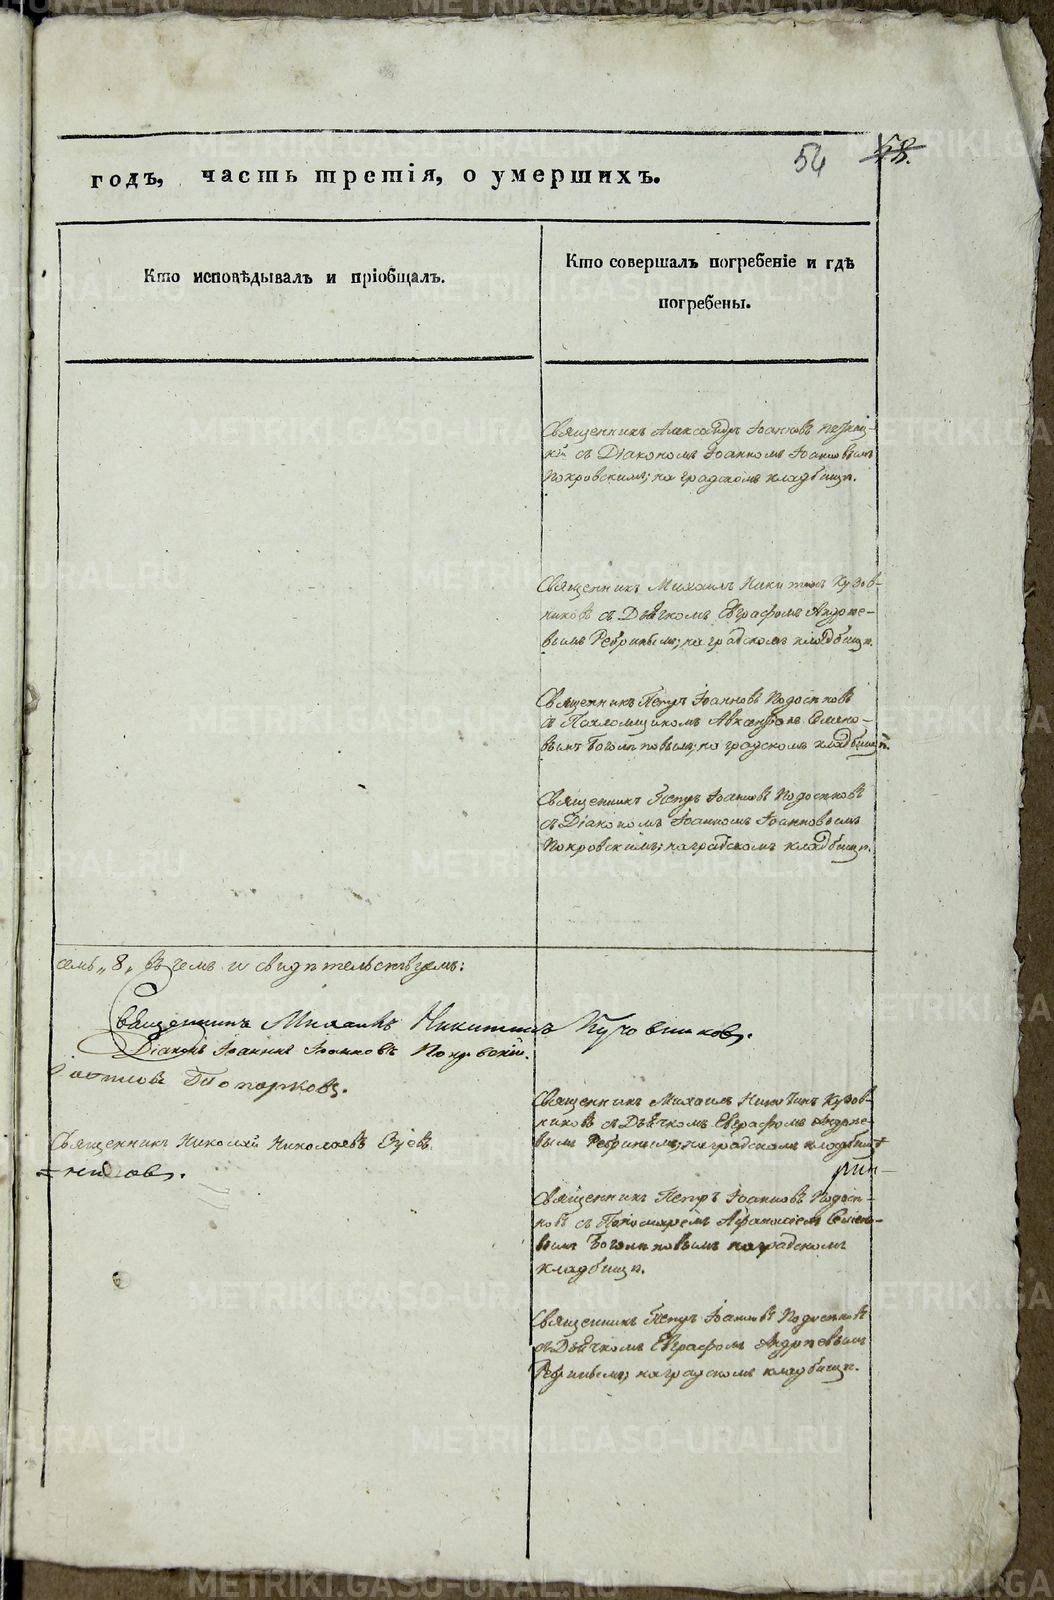 54 58.
годъ, часть третія, о умершихъ.
Кто исповѣдывалъ и пріобщалъ.
Кто совершалъ погребеніе и гдѣ
погребены.
Священникъ Александръ Іоанновъ
съ Діакономъ Іоанномъ Іоанновымъ
Покровскимъ; на градскомъ кладбищѣ.
Священникъ Михаилъ Никитинъ Кузов-
никовъ съ Дьячкомъ Евграфомъ Андрее-
вымъ Ребринымъ; на градскомъ кладбищѣ.
Священникъ Петръ Іоанновъ Подосеновъ
съ Семено-
вымъ Боголѣповымъ; на градскомъ кладбищѣ.
Священникъ Петръ Іоанновъ Подосеновъ
съ Діакономъ Іоанномъ Іоанновымъ
Покровскимъ; на градскомъ кладбищѣ.
семь „8„ въ чемъ и свидѣтельствуемъ:
Священникъ Михаилъ Никитинъ Кузовниковъ.
Діаконъ Іоаннъ Іоанновъ Покровскій.
Топорковъ.
Священникъ Николай Николаевъ
Священникъ Михаилъ Никитинъ Кузов-
никовъ съ Дьячкомъ Евграфомъ Андрее-
вымъ Ребринымъ; на градскомъ кладбищѣ
Священникъ Петръ Іоанновъ Подосе-
новъ съ Пономаремъ Афанасіемъ Семено-
вымъ Боголѣповымъ на градскомъ
кладбищѣ.
Священникъ Петръ Іоанновъ Подосеновъ
съ Дьячкомъ Евграфомъ Андреевымъ
Ребринымъ; на градскомъ кладбищѣ.
METRIKI.GASO-URAL.RU